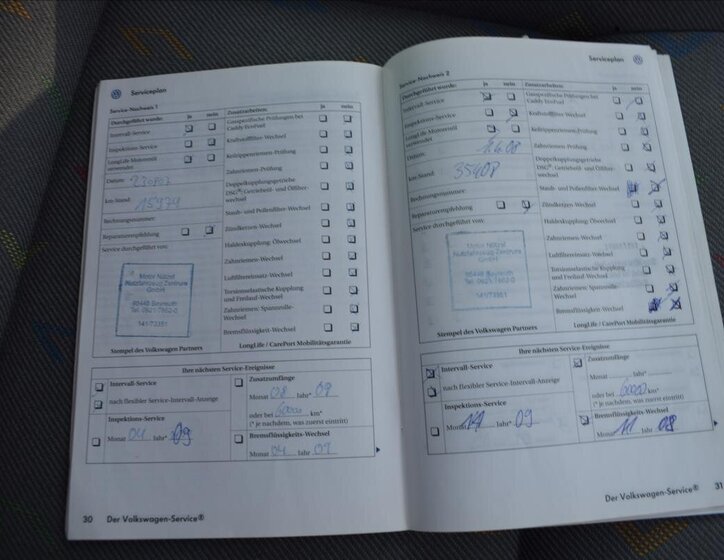 Serviceplan
Service-Nachweis 1
Durchgeführt wurde: ja nein
Intervall-Service
Inspektions-Service
LongLife Motorenöl
verwendet
Datum:
km-Stand: 15979
Rechnungsnummer:
Reparaturempfehlung
Service durchgeführt von:
Motor Nützel
Nutzfahrzeug-Zentrum
GmbH
95448 Bayreuth
141/73351
Stempel des Volkswagen Partners
Zusatzarbeiten: ja nein
Gasspezifische Prüfungen bei
Caddy EcoFuel
Kraftstofffilter-Wechsel
Keilrippenriemen-Prüfung
Zahnriemen-Prüfung
Doppelkupplungsgetriebe
DSG®: Getriebeöl- und Ölfilter-
wechsel
Staub- und Pollenfilter-Wechsel
Zündkerzen-Wechsel
Haldexkupplung- Ölwechsel
Zahnriemen-Wechsel
Luftfiltereinsatz-Wechsel
Torsionselastische Kupplung
und Freilauf-Wechsel
Zahnriemen/Spannrolle-
Wechsel
Bremsflüssigkeit-Wechsel
LongLife / CarePort Mobilitätsgarantie
Ihre nächsten Service-Ereignisse
Intervall-Service
nach flexibler Service-Intervall-Anzeige
Inspektions-Service
Monat 04 Jahr* 09
Zusatzumfänge
Monat 08 Jahr* 09
oder bei 60000 km*
(* je nachdem, was zuerst eintritt)
Bremsflüssigkeits-Wechsel
Monat 04 Jahr 09
30 Der Volkswagen-Service®
Serviceplan
Service-Nachweis 2
Durchgeführt wurde: ja nein
Intervall-Service
Inspektions-Service
LongLife Motorenöl
verwendet
Datum:
km-Stand: 35408
Rechnungsnummer:
Reparaturempfehlung
Service durchgeführt von:
Motor Nützel
Nutzfahrzeug-Zentrum
GmbH
95448 Bayreuth
141/73351
Stempel des Volkswagen Partners
Zusatzarbeiten: ja nein
Gasspezifische Prüfungen bei
Caddy EcoFuel
Kraftstofffilter-Wechsel
Keilrippenriemen-Prüfung
Zahnriemen-Prüfung
Doppelkupplungsgetriebe
DSG®: Getriebeöl- und Ölfilter-
wechsel
Staub- und Pollenfilter-Wechsel
Zündkerzen-Wechsel
Haldexkupplung- Ölwechsel
Zahnriemen-Wechsel
Luftfiltereinsatz-Wechsel
Torsionselastische Kupplung
und Freilauf-Wechsel
Zahnriemen/Spannrolle-
Wechsel
Bremsflüssigkeit-Wechsel
LongLife / CarePort Mobilitätsgarantie
Ihre nächsten Service-Ereignisse
Intervall-Service
nach flexibler Service-Intervall-Anzeige
Inspektions-Service
Monat Jahr* 09
Zusatzumfänge
Monat Jahr*
oder bei 60000 km*
(* je nachdem, was zuerst eintritt)
Bremsflüssigkeits-Wechsel
Monat 11 Jahr 08
Der Volkswagen-Service® 31